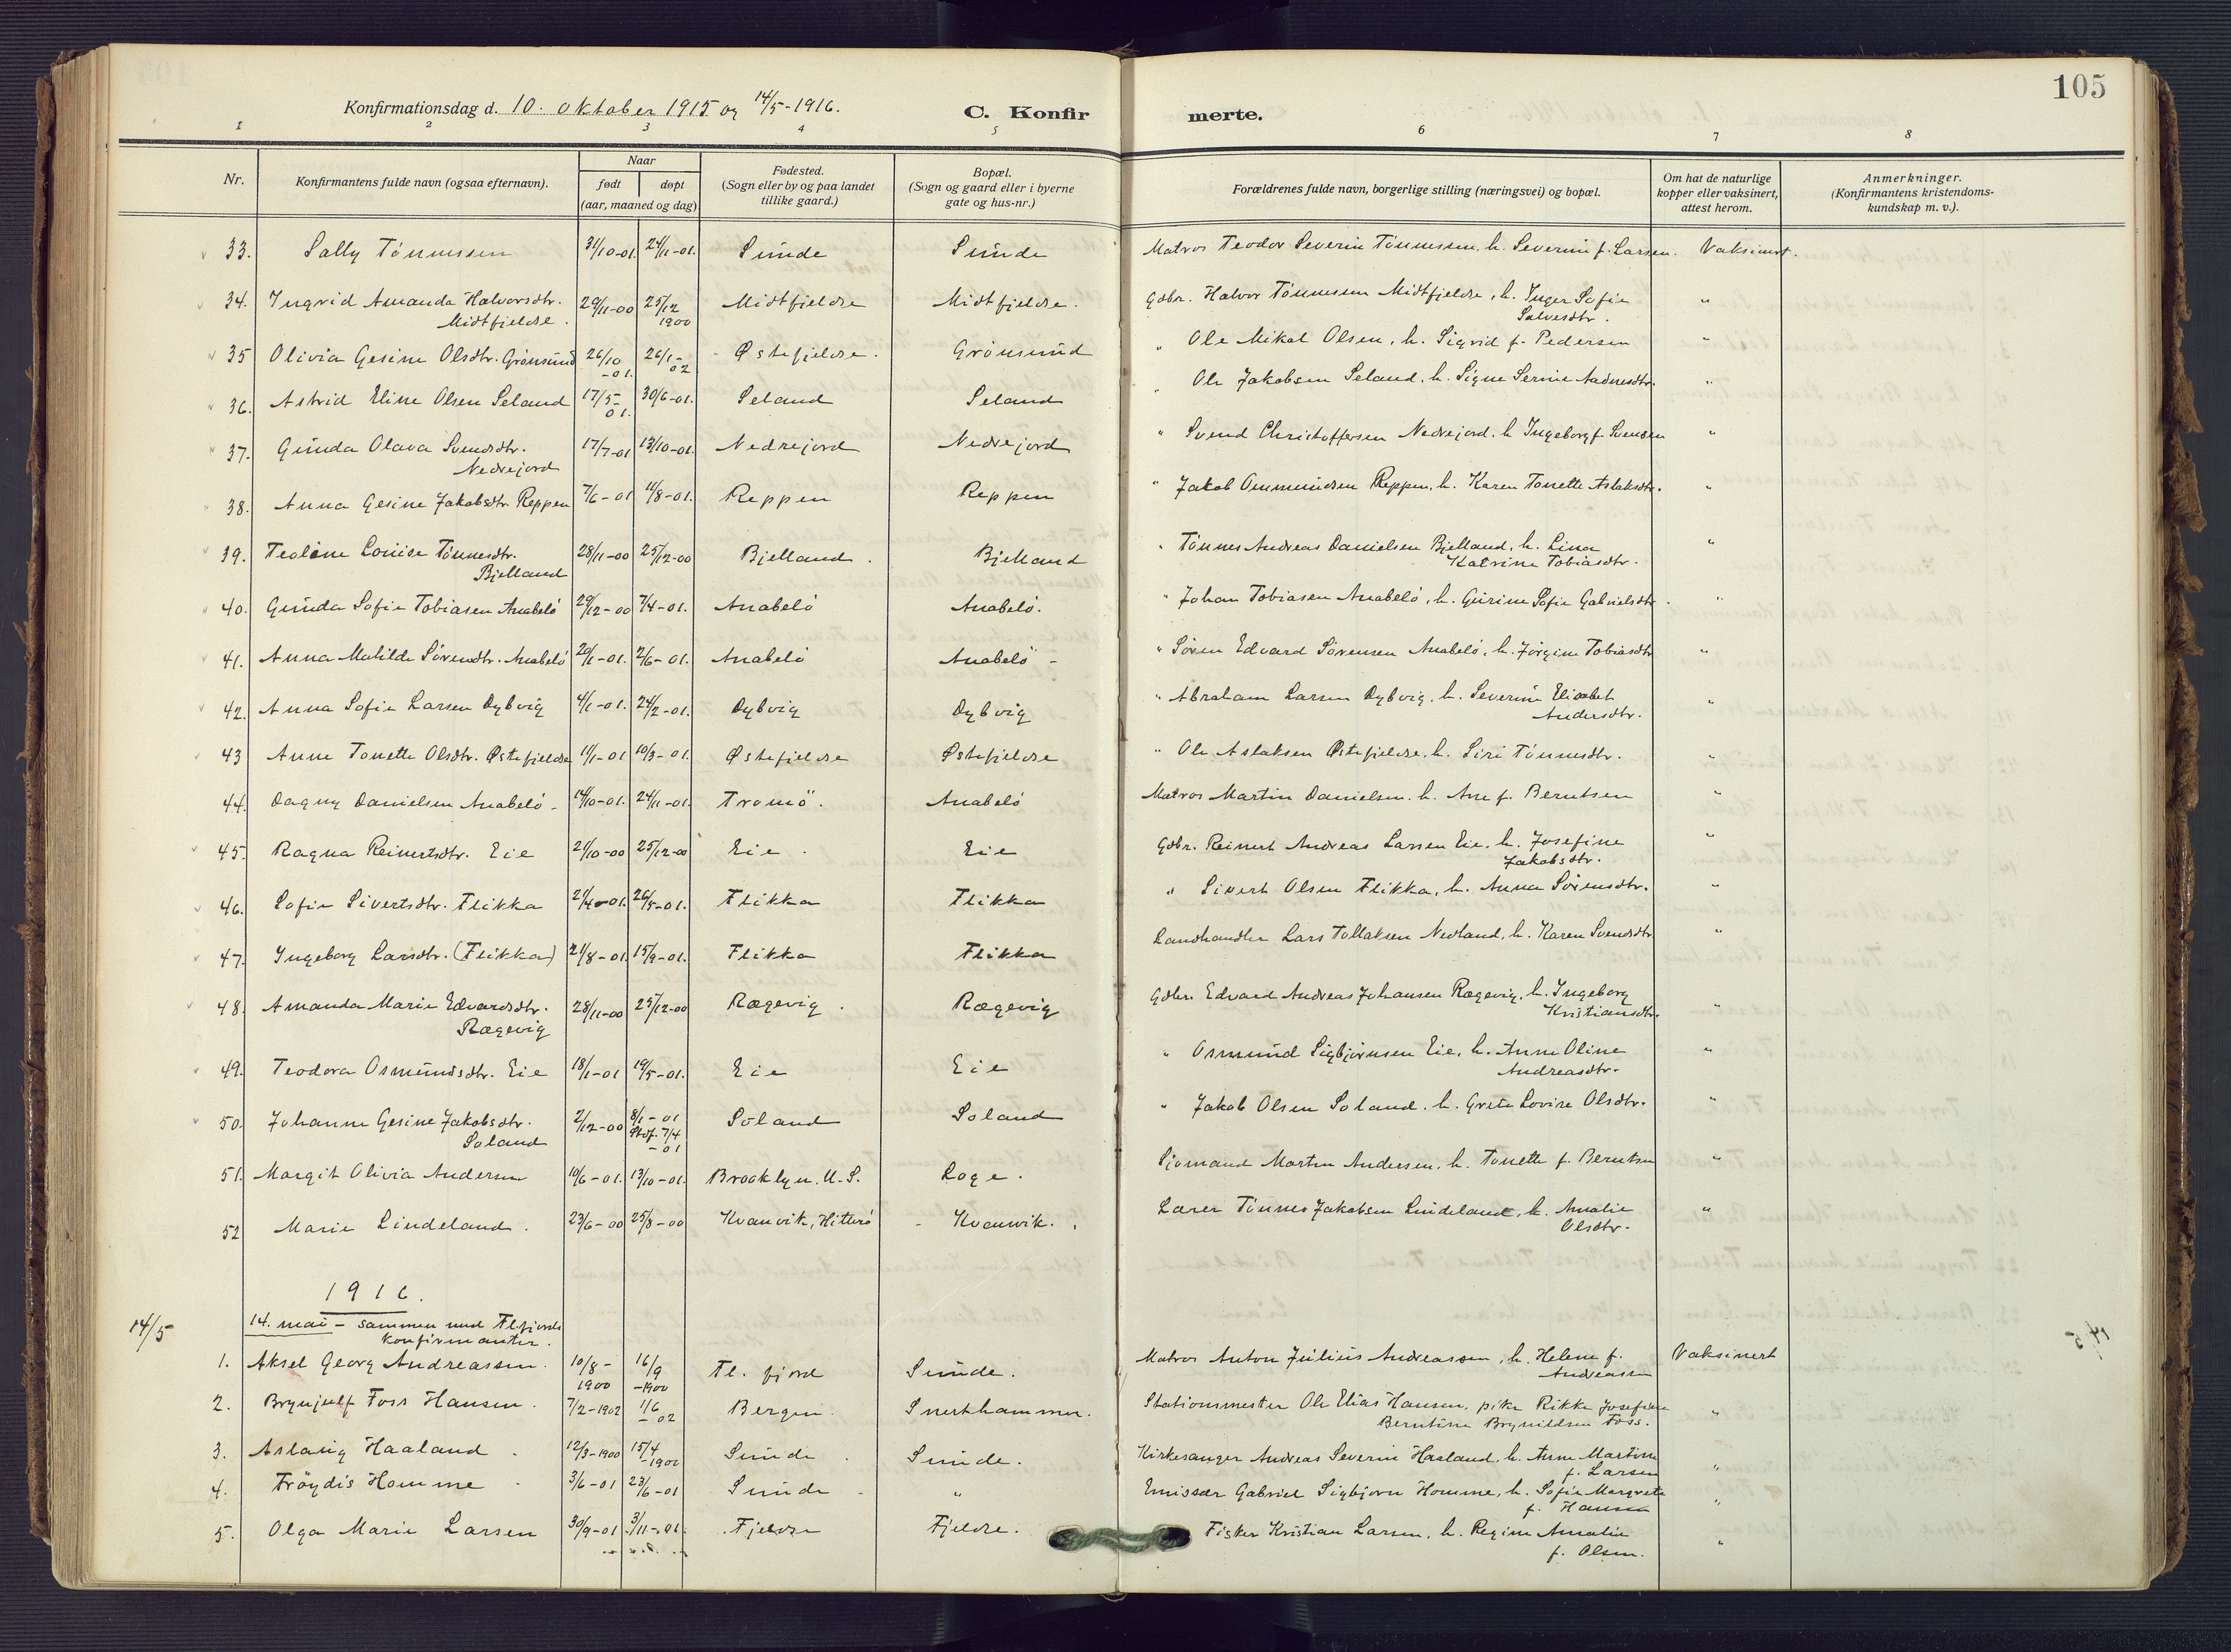 105
Konfirmationsdag d. 10. oktober 1915 og 14/5-1916. C. Konfirmerte.
1 2 3 4 5 6 7 8
Nr. Konfirmantens fulde navn (ogsaa efternavn). Naar født døpt (aar, maaned og dag) Fødested. (Sogn eller by og paa landet tillike gaard.) Bopæl. (Sogn og gaard eller i byerne gate og hus-nr.) Forældrenes fulde navn, borgerlige stilling (næringsvei) og bopæl. Om hat de naturlige kopper eller vaksinert, attest herom. Anmerkninger. (Konfirmantens kristendoms-kundskap m. v.).
33. Sally Tönnessen 31/10-01. 24/11-01. Sunde Sunde Matros Teodor Severin Tönnessen, h. Severine f. Larsen. Vaksinert.
34. Ingrid Amanda Halvorsdtr. Midtfjeldse. 29/11-00 25/12 1900 Midtfjeldse Midtfjeldse. Gdbr. Halvor Tönnessen Midtfjeldse, h. Inger Sofie Salvesdtr. "
35 Olivia Gesine Olsdtr. Grönsund 26/10-01. 26/1-02 Østefjeldse. Grönsund " Ole Mikal Olsen, h. Sigrid f. Pedersen "
36. Astrid Eline Olsen Seland 17/5-01. 30/6-01. Seland Seland " Ole Jakobsen Seland, h. Signe Serine Aadnesdtr. "
37. Gunda Olava Svendsdtr. Nedrejord 17/7-01 13/10-01. Nedrejord Nedrejord " Svend Christoffersen Nedrejord, h. Ingeborg f. Svensen "
38. Anna Gesine Jakobsdtr. Reppen 7/6-01 11/8-01. Reppen Reppen " Jakob Ommundsen Reppen, h. Karen Tonette Aslaksdtr. "
39. Teoline Louise Tönnesdtr. Bjelland 28/11-00 25/12-00 Bjelland. Bjelland " Tönnes Andreas Danielsen Bjelland, h. Lina Katrine Tobiasdtr. "
40. Gunda Sofie Tobiasen Anabelö 29/12-00 7/4-01. Anabelö Anabelö. " Johan Tobiasen Anabelö, h. Gurine Sofie Gabrielsdtr. "
41. Anna Matilde Sörensdtr. Anabelö 20/1-01. 2/6-01. Anabelö Anabelö- " Sören Edvard Sörensen Anabelö, h. Jörgine Tobiasdtr "
42. Anna Sofie Larsen Dybvig 4/1-01. 24/2-01. Dybvig Dybvig " Abraham Larsen Dybvig, h. Severine Elisabet Andersdtr. "
43 Anne Tonette Olsdtr. Østefjeldse 11/1-01 10/3-01. Østefjeldse Østefjeldse " Ole Aslaksen Østefjeldse, h. Siri Tönnesdtr. "
44. Dagny Danielsen Anabelö- 14/10-01. 24/11-01. Tromö. Anabelö Matros Martin Danielsen, h. Ane f. Berntsen "
45. Ragna Reinertsdtr. Eie 21/10-00 25/12-00 Eie. Eie Gdbr. Reinert Andreas Larsen Eie, h. Josefine Jakobsdtr. "
46. Sofie Sivertsdtr. Flikka 21/4-01. 26/5-01. Flikka Flikka " Sivert Olsen Flikka, h. Anna Sörensdtr. "
47. Ingeborg Larsdtr. (Flikka) 21/8-01. 15/9-01. Flikka Flikka Landhandler Lars Tollaksen Nedland, h. Karen Svendsdtr "
48. Amanda Marie Edvardsdtr. Rægevig 28/11-00 25/12-00 Rægevig. Rægevig Gdbr. Edvard Andreas Johansen Rægevig, h. Ingeborg Kristiansdtr. "
49. Teodora Osmundsdtr. Eie 18/1-01 19/5-01. Eie Eie " Osmund Sigbjörnsen Eie, h. Anne Oline Andreasdtr. "
50. Johanne Gesine Jakobsdtr. Soland 2/12-00 8/1-01 Stdf. 7/4-01 Soland Soland " Jakob Olsen Soland, h. Grete Lovise Olsdtr.
51. Margit Olivia Andersen 10/6-01. 13/10-01. Brooklyn. U.S. Loge. Sjömand Martin Andersen, h. Tonette f. Berntsen "
52 Marie Lindeland. 23/6-00 25/8-00 Kvanvik, Hitterö Kvanvik. Lærer Tönnes Jakobsen Lindeland, h. Amalie Olsdtr. "
1916.
14/5 14. mai - sammen med Flefjords konfirmanter.
1. Aksel Georg Andreassen. 10/8-1900 16/9-1900 Fl. fjord Sunde. Matros Anton Julius Andreassen, h. Helene f. Andreassen Vaksinert
2. Brynjulf Foss Hansen. 7/2-1902 1/6-02 Bergen. Snerthammer. Stationsmester Ole Elias Hansen, pike Rikke Josefine Berntine Brynildsen Foss. "
3. Aslaug Haaland. 12/3-1900 15/4-1900 Sunde. Sunde. Kirkesanger Andreas Severin Haaland, h. Anne Martine f. Larsen "
4. Fröydis Homme 3/6-01 23/6-01 Sunde " Emissær Gabriel Sigbjörn Homme, h. Sofie Margrete f. Hansen "
5. Olga Marie Larsen 30/9-01 3/11-01. Fjeldse Fjeldse. Fisker Kristian Larsen, h. Regine Amalie f. Olsen. "